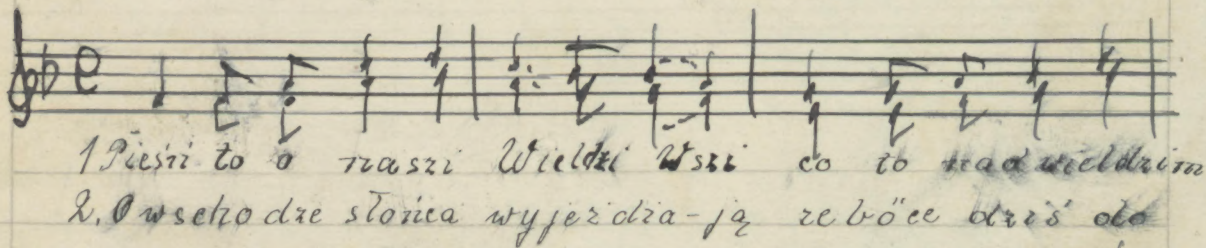 1 Pieśń to o naszi Wieldzi Wszi co to nad wieldzim
2. O wschodze słońca wyjeżdża-ją rebôce dziś do